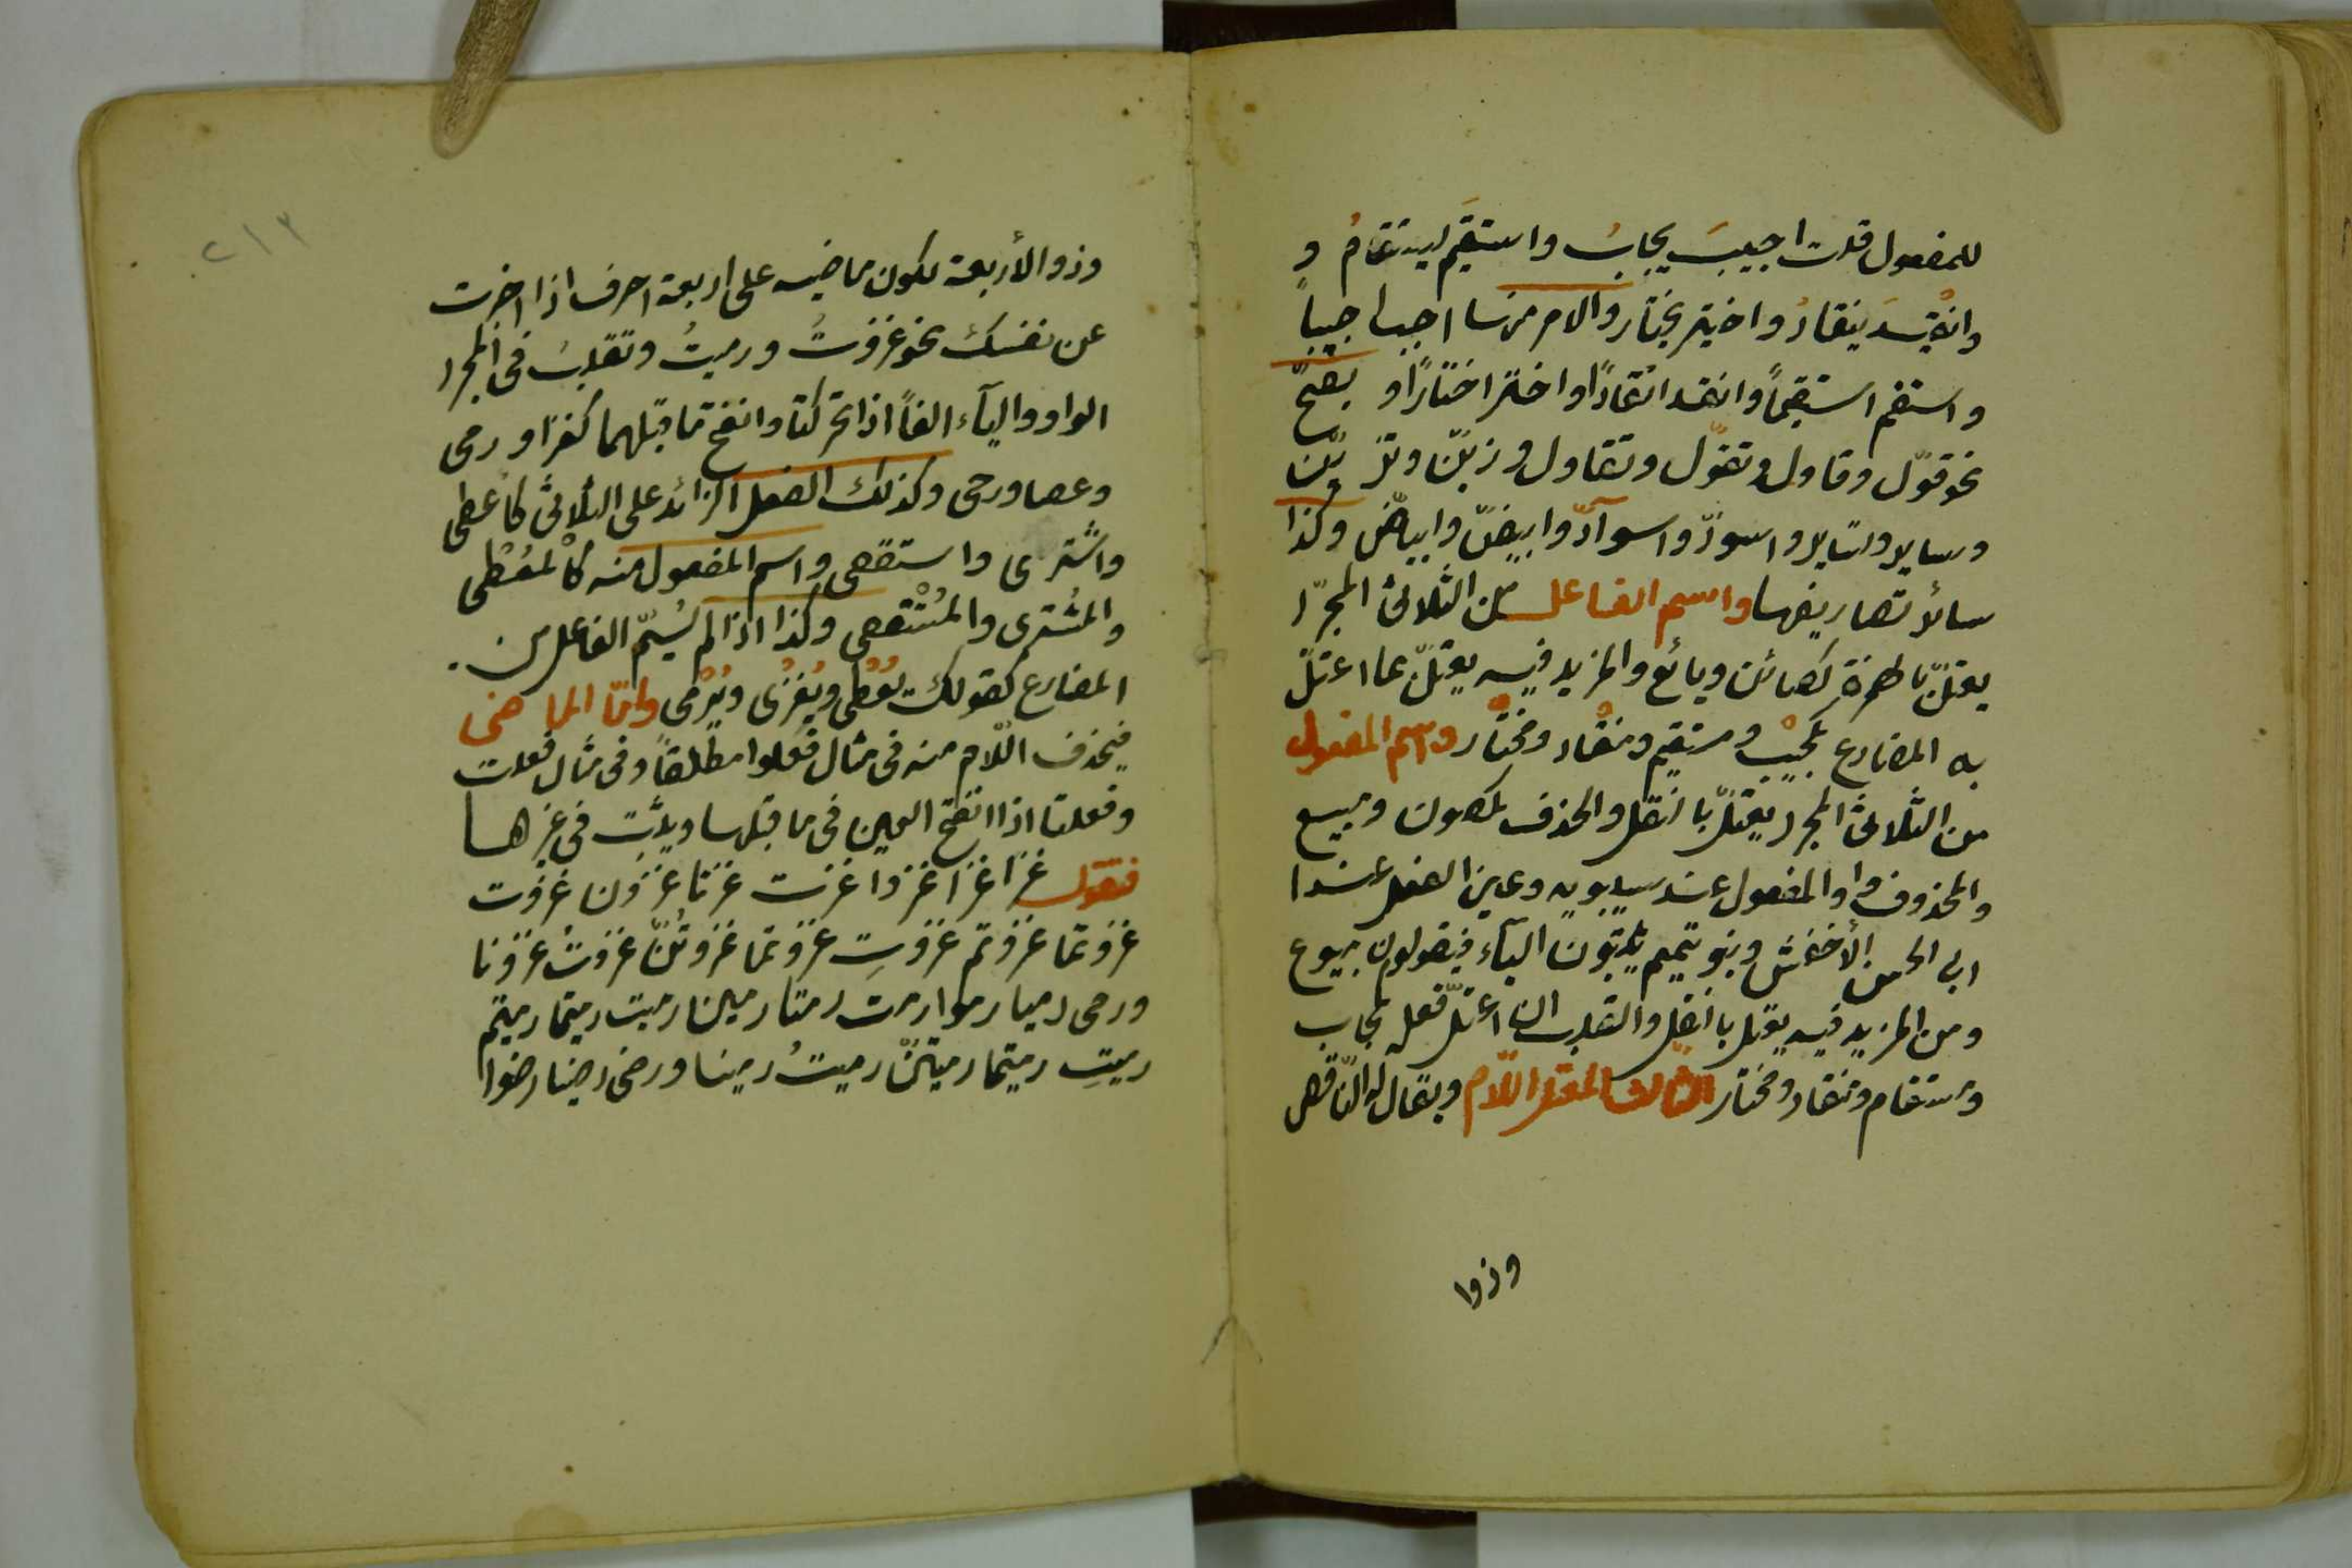 للمفعول قلت اجيبَ يجابُ واستقيَم يستقامُ و
وانقيدَ ينقادُ واختير يختار والامر منها اجب اجيبا
واستقم استقيمًا وانقد انقادًا واختر اختارًا و يصحّ
نحو قوّل وقاول وتقوّل وتقاول وزيّن وتزيّن
وساير وتساير واسودّ واسوآدّ وابيضّ وابياضّ وكذا
سائر تصاريفها واسم الفاعل من الثلاثى المجرّد
يعتلّ بالهمزة كصائن وبائع والمزيد فيه يعتلّ بما اعتلّ
به المضارع كمجيب ومستقيم ومنقاد ومختار واسم المفعول
من الثلاثى المجرد يعتلّ بالنقل والحذف كمصون ومبيع
والمحذوف واو المفعول عند سيبويه وعين الفعل عند ا
ابى الحسن الأخفش وبنو تميم يثبتون اليآء فيقولون مبيوع
ومن المزيد فيه يعتل بالنقل والقلب ان اعتلّ فعله كمجاب
ومستقام ومنقاد ومختار الثالث المعتل اللّام ويقال له النّاقص
وذوا
٢١٣
وذو الأربعة لكون ماضيه على اربعة احرف اذا اخبرت
عن نفسك نحو غزوتُ ورميتُ وتقلب فى المجرد
الواو واليآء الفاً اذا تحركتا وانفتح ما قبلهما كغزا ورمى
وعصا ورحى وكذلك الفعل الزائد على الثلاثى كاعطى
واشترى واستقصى واسم المفعول منه كالمعْطى
والمشترى والمستقصى وكذا اذا لم يُسمّ الفاعل من
المضارع كقولك يُعْطى ويُغْزى ويُرْمى وامّا الماضى
فيحذف اللّام منه فى مثال فعلوا مطلقاً وفى مثال فعلت
وفعلتا اذا انفتح العين فى ما قبلها ويثبت فى غيرها
فتقول غزا غزا غزوا غزت غزتا غزون غزوت
غزوتما غزوتم غزوتِ غزوتما غزوتُنّ غزوتُ غزونا
ورمى رميا رموا رمت رمتا رمين رميت رميتما رميتم
رميتِ رميتما رميتنّ رميتُ رمينا ورضى رضيا رضوا